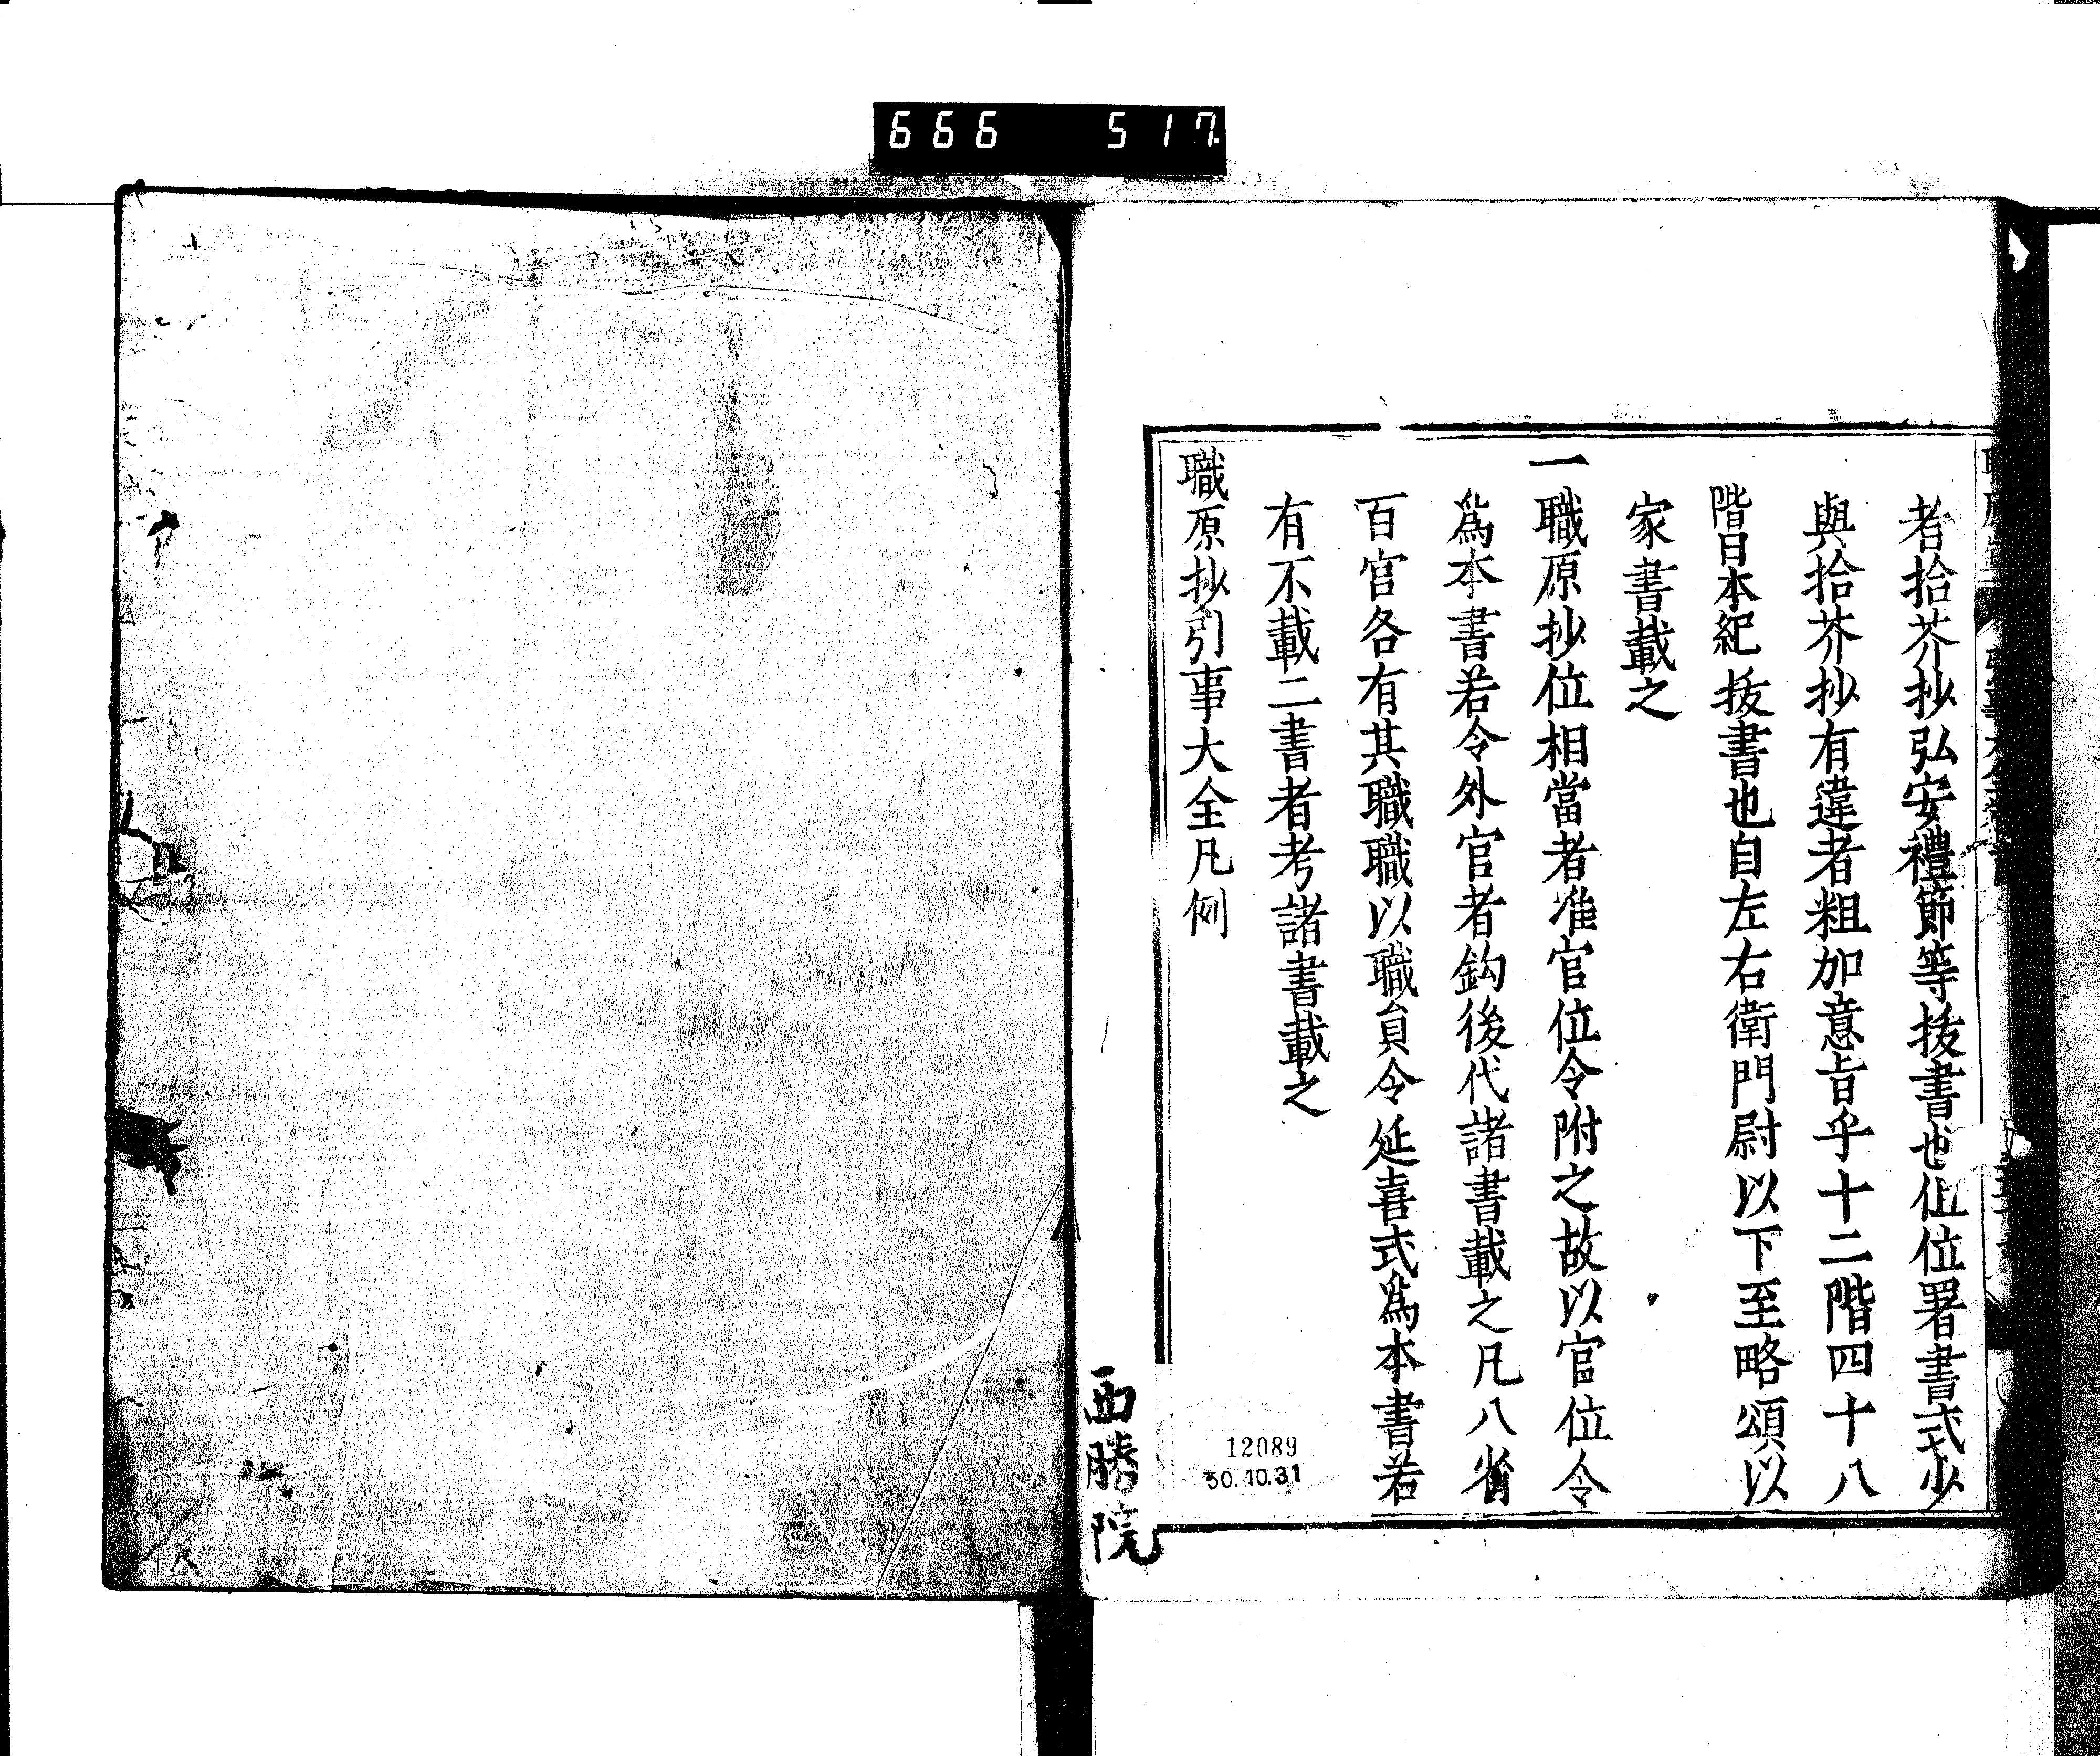 666 517
者拾芥抄弘安禮節等抜書也但位署書式少
與拾芥抄有違者粗加意旨乎十二階四十八
階日本紀抜書也自左右衛門尉以下至略頌以
家書載之
一職原抄位相當者准官位令附之故以官位令
爲本書若令外官者鈎後代諸書載之凡八省
百官各有其職職以職員令延喜式爲本書若
有不載二書者考諸書載之
職原抄引事大全凡例
12089
50.10.31
西勝院